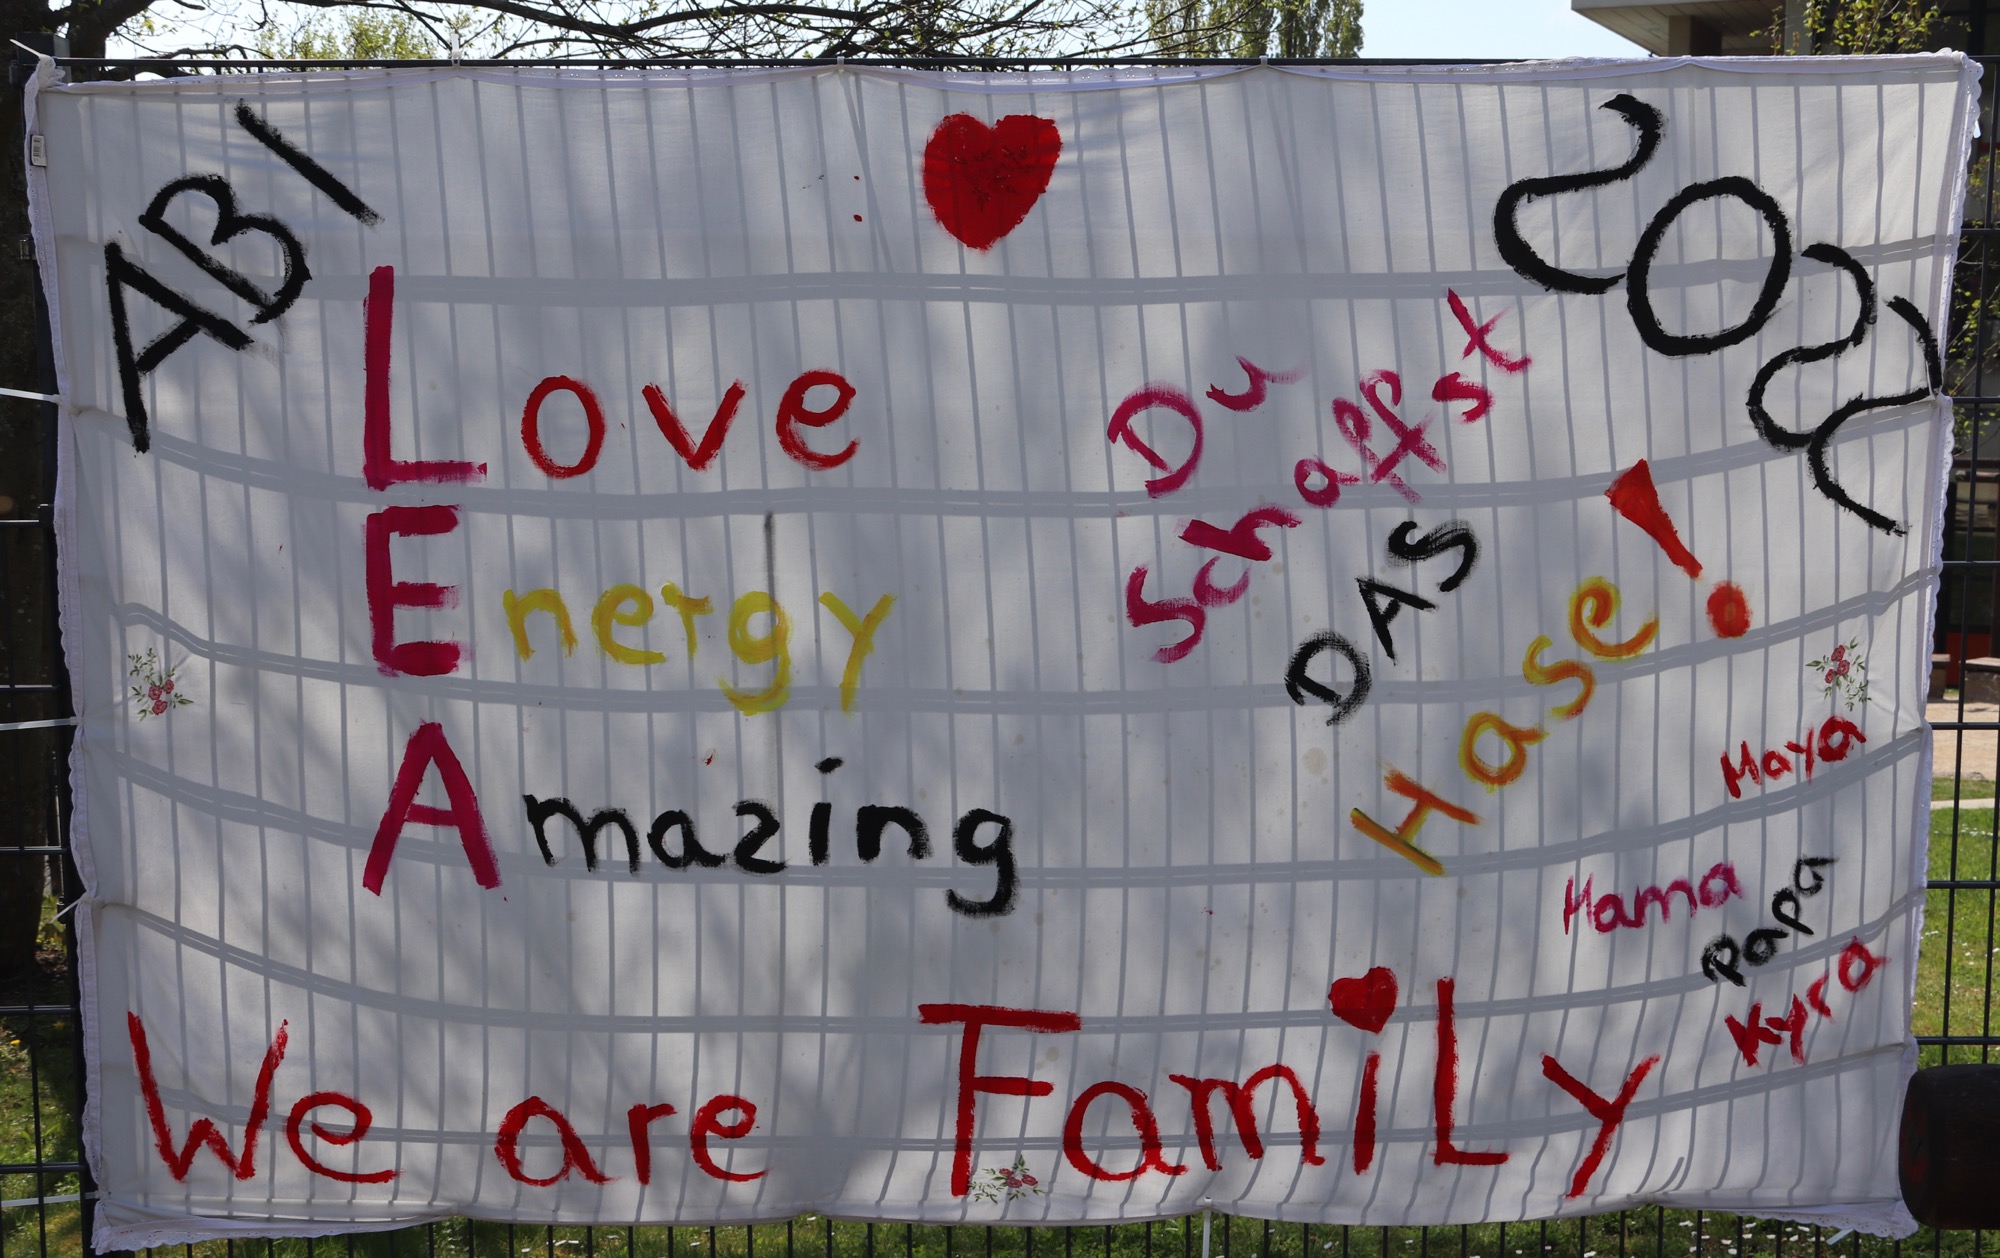 ABI 2022
Love
Energy
Amazing
Du
Schaffst
DAS
Hase!
Maya
Mama
Papa
Kyra
We are FamiLy